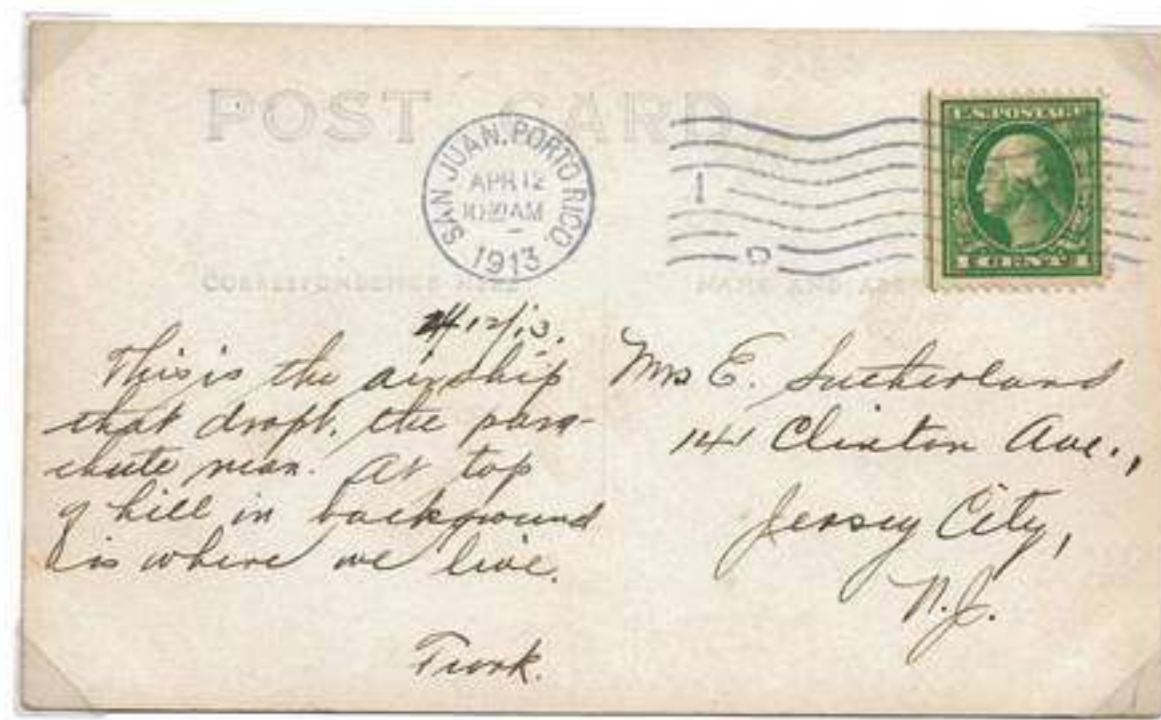 POST CARD
SAN JUAN, PORTO RICO
APR 12
AM
1913
U.S. POSTAGE
CORRESPONDENCE HERE
NAME AND
4/12/13.
This is the airship
that dropt. the para-
chute man. At top
of hill in background
is where we live.
Mrs E. Sutherland
141 Clinton Ave.,
Jersey City,
N.J.